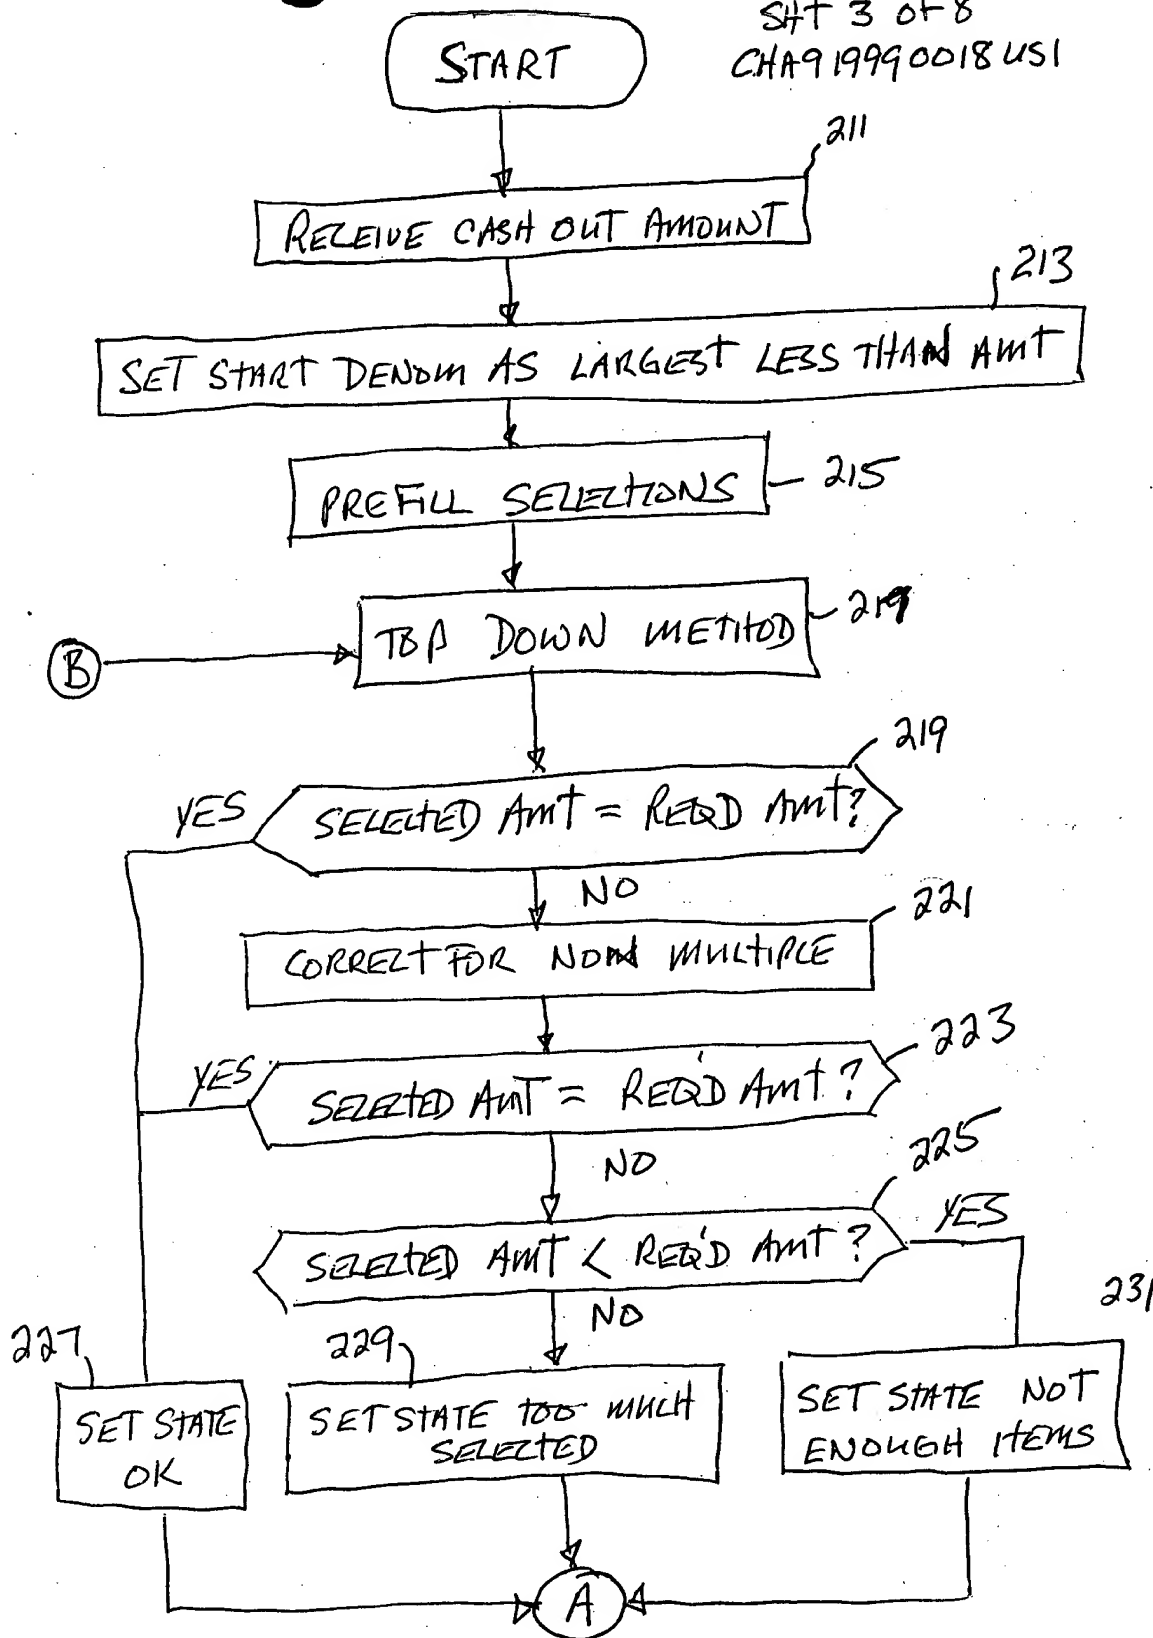 SHT 3 OF 8
CHA919990018US1
START
211
RECEIVE CASH OUT AMOUNT
213
SET START DENOM AS LARGEST LESS THAN AMT
PREFILL SELECTIONS
215
TOP DOWN METHOD
B
219
SELECTED AMT = REQD AMT?
YES
NO
221
CORRECT FOR NON MULTIPLE
223
YES
SELECTED AMT = REQ'D AMT?
NO
225
YES
SELECTED AMT < REQ'D AMT?
NO
231
227
229
SET STATE
OK
SET STATE TOO MUCH
SELECTED
SET STATE NOT
ENOUGH ITEMS
A